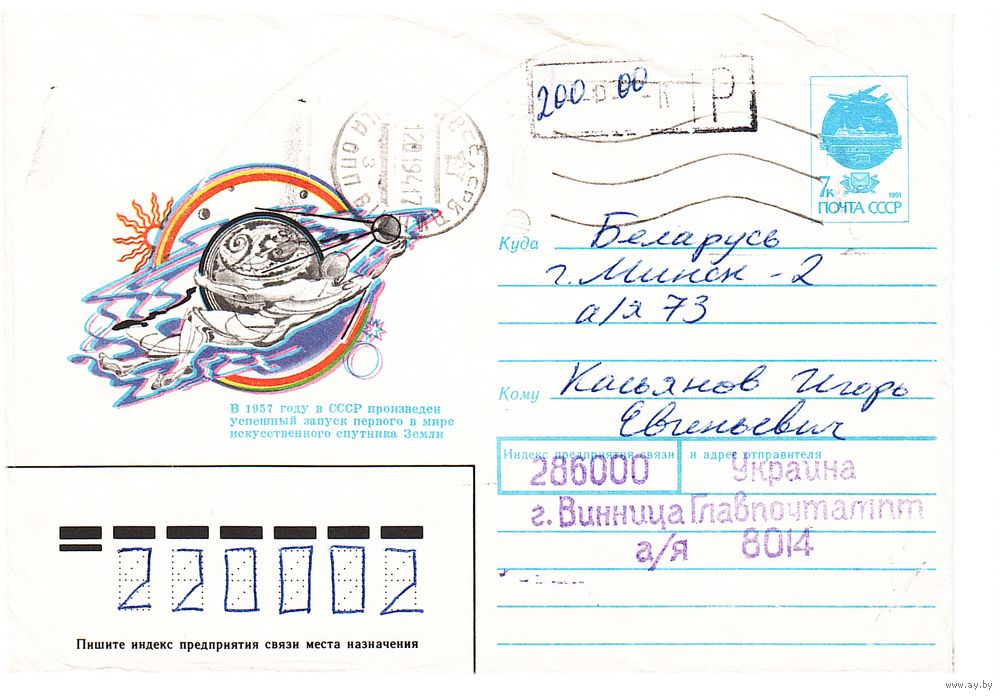 200-00
Р
7к
1991
ПОЧТА СССР
12019417
Куда Беларусь
г. Минск - 2
а/я 73
Кому Касьянов Игорь
Евгеньевич
В 1957 году в СССР произведен
успешный запуск первого в мире
искусственного спутника Земли
Индекс предприятия связи и адрес отправителя
286000 Украина
г. Винница Главпочтампт
а/я 8014
220012
Пишите индекс предприятия связи места назначения
www.ay.by